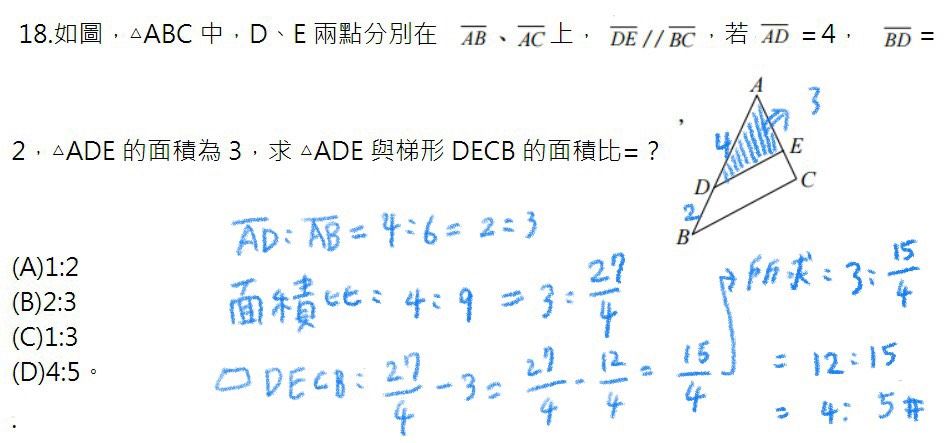 18.如圖，△ABC 中，D、E 兩點分別在 AB、AC 上， DE // BC ，若 AD = 4， BD =
2，△ADE 的面積為 3，求 △ADE 與梯形 DECB 的面積比=？
,
A
3
4
E
D
C
2
B
AD : AB = 4 : 6 = 2 : 3
(A)1:2
面積比 : 4 : 9 = 3 : 27/4
所求 : 3 : 15/4
(B)2:3
(C)1:3
= 12 : 15
(D)4:5。
▱DECB : 27/4 - 3 = 27/4 - 12/4 = 15/4
= 4 : 5 #
.